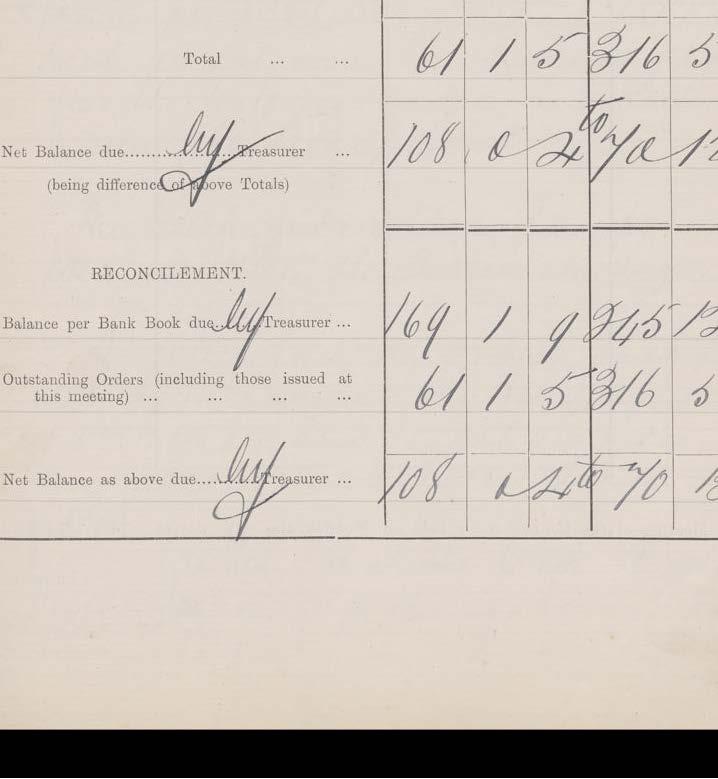 Total ... ... 61 1 5 316 5
Net Balance due by Treasurer ... 108 0 4 to 70 12
(being difference of above Totals)
RECONCILEMENT.
Balance per Bank Book due by Treasurer ... 169 1 9 245 12
Outstanding Orders (including those issued at
this meeting) ... ... ... ... 61 1 5 316 5
Net Balance as above due by Treasurer ... 108 0 4 to 70